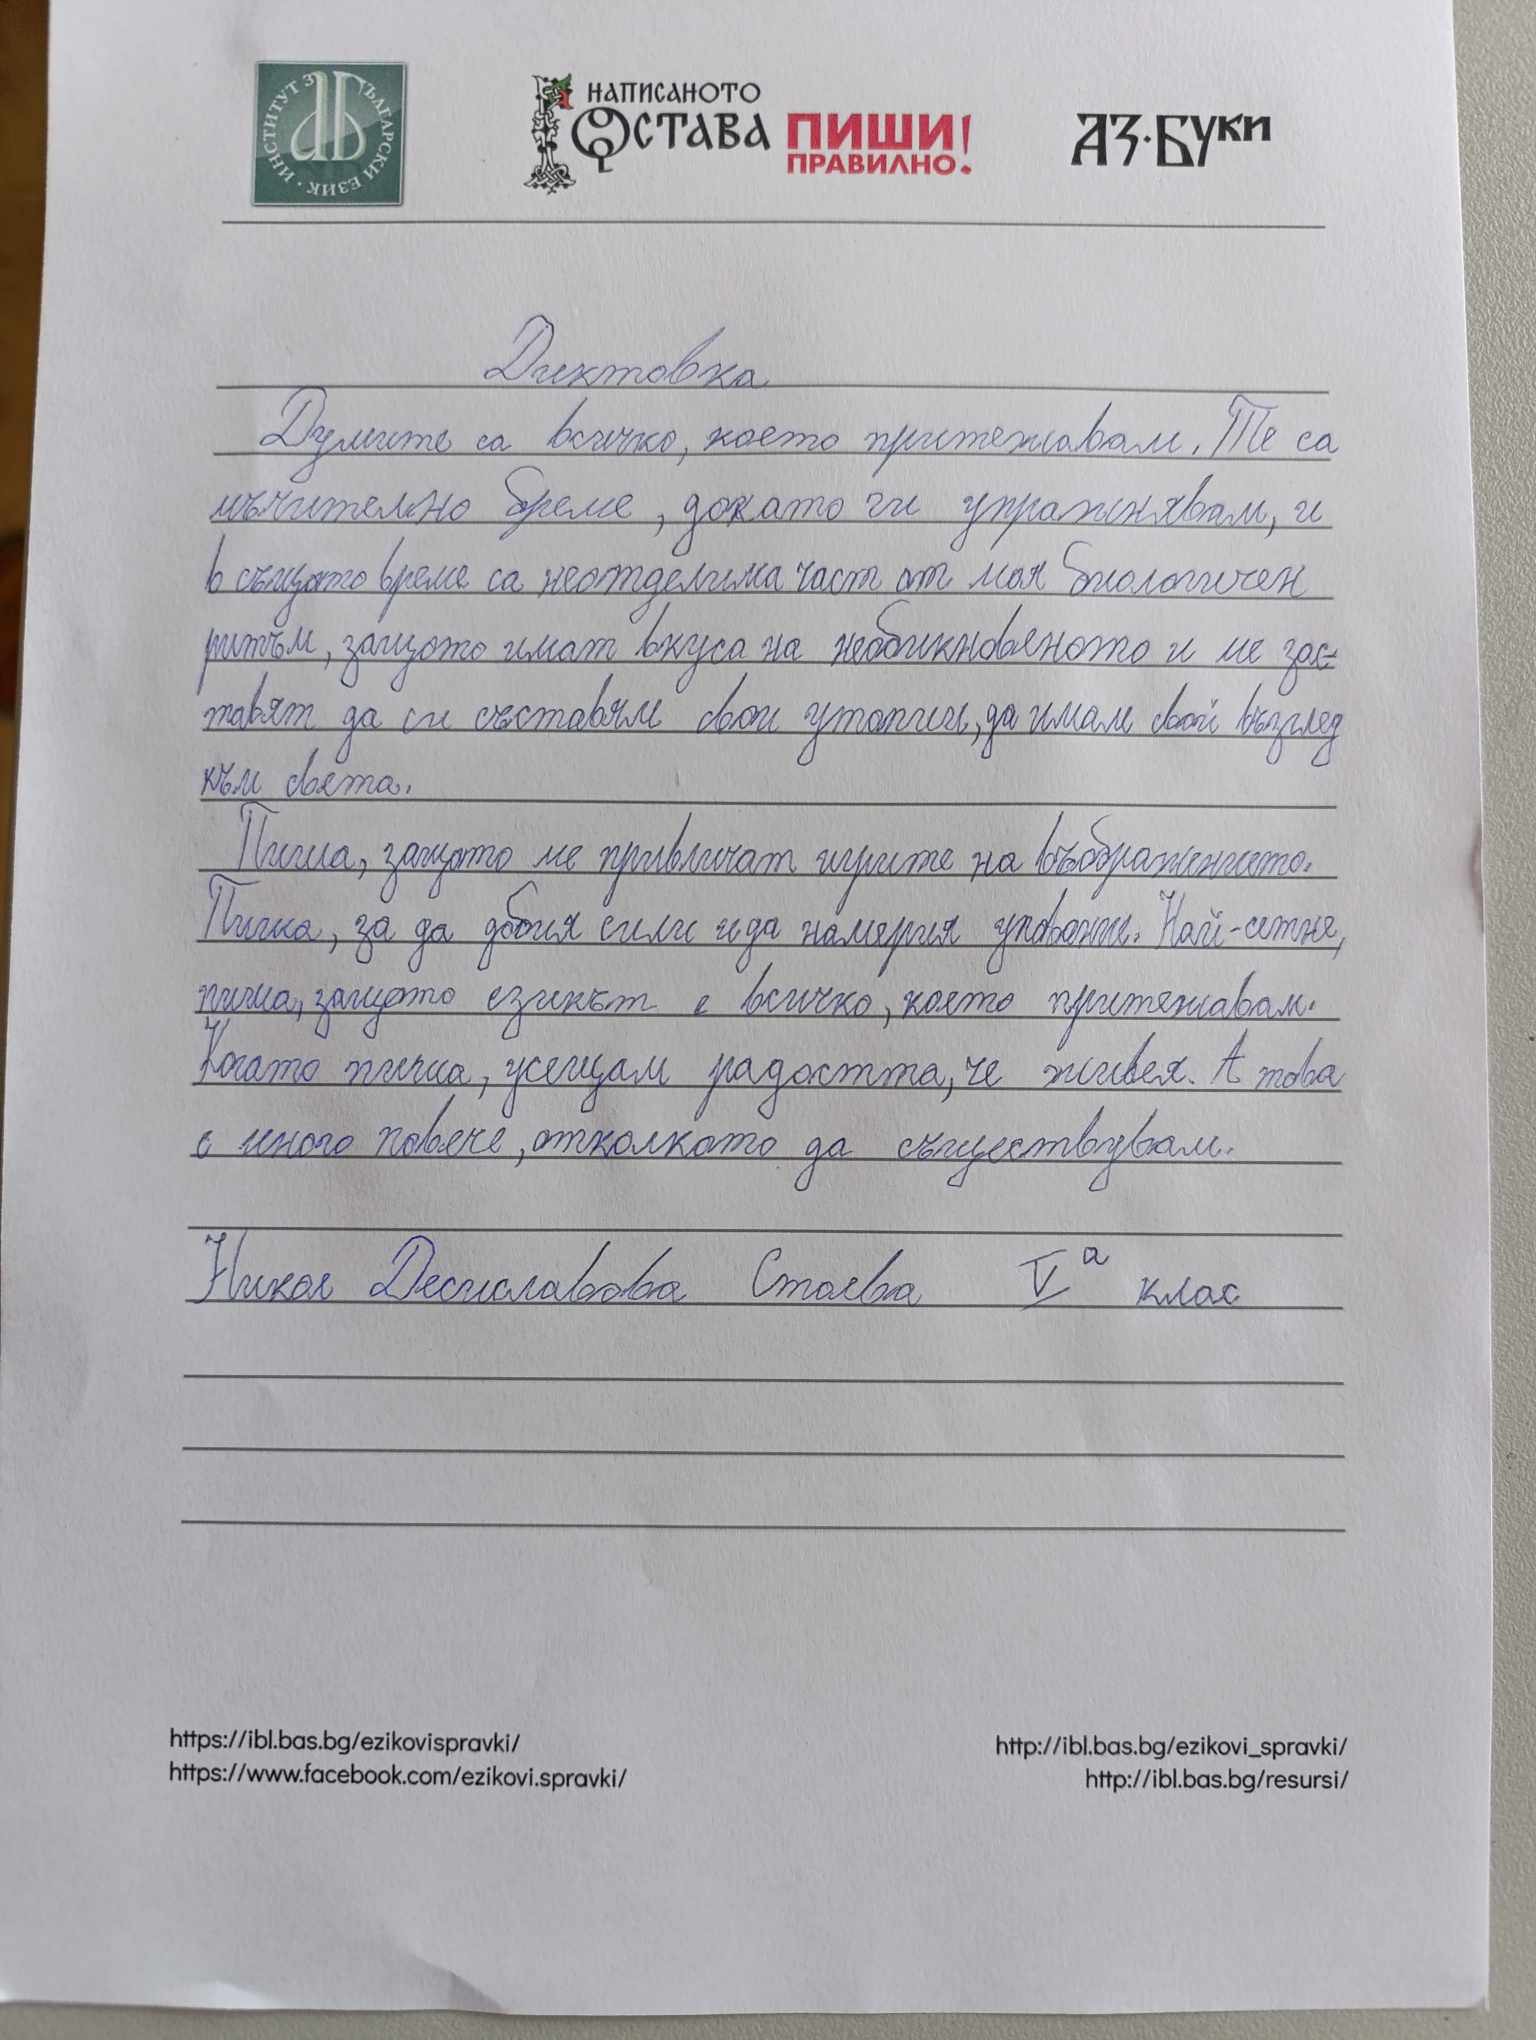 ИНСТИТУТ ЗА БЪЛГАРСКИ ЕЗИК
НАПИСАНОТО
ОСТАВА
ПИШИ!
ПРАВИЛНО!
АЗ·БУКИ
Диктовка
Думите са всичко, което притежавам. Те са
мъчително бреме, докато ги упражнявам, и
в същото време са неотделима част от моя биологичен
ритъм, защото имат вкуса на необикновяното и ме зас-
тавят да си съставям свои утопии, да имам свой възглед
към света.
Пиша, защото ме привличат игрите на въображението.
Пиша, за да добия сили и да намеря упование. Най-сетне,
пиша, защото езикът е всичко, което притежавам.
Когато пиша, усещам радостта, че живея. А това
е много повече, отколкото да съществувам.
Никол Десиславова Стоева V а клас
https://ibl.bas.bg/ezikovispravki/
http://ibl.bas.bg/ezikovi_spravki/
https://www.facebook.com/ezikovi.spravki/
http://ibl.bas.bg/resursi/